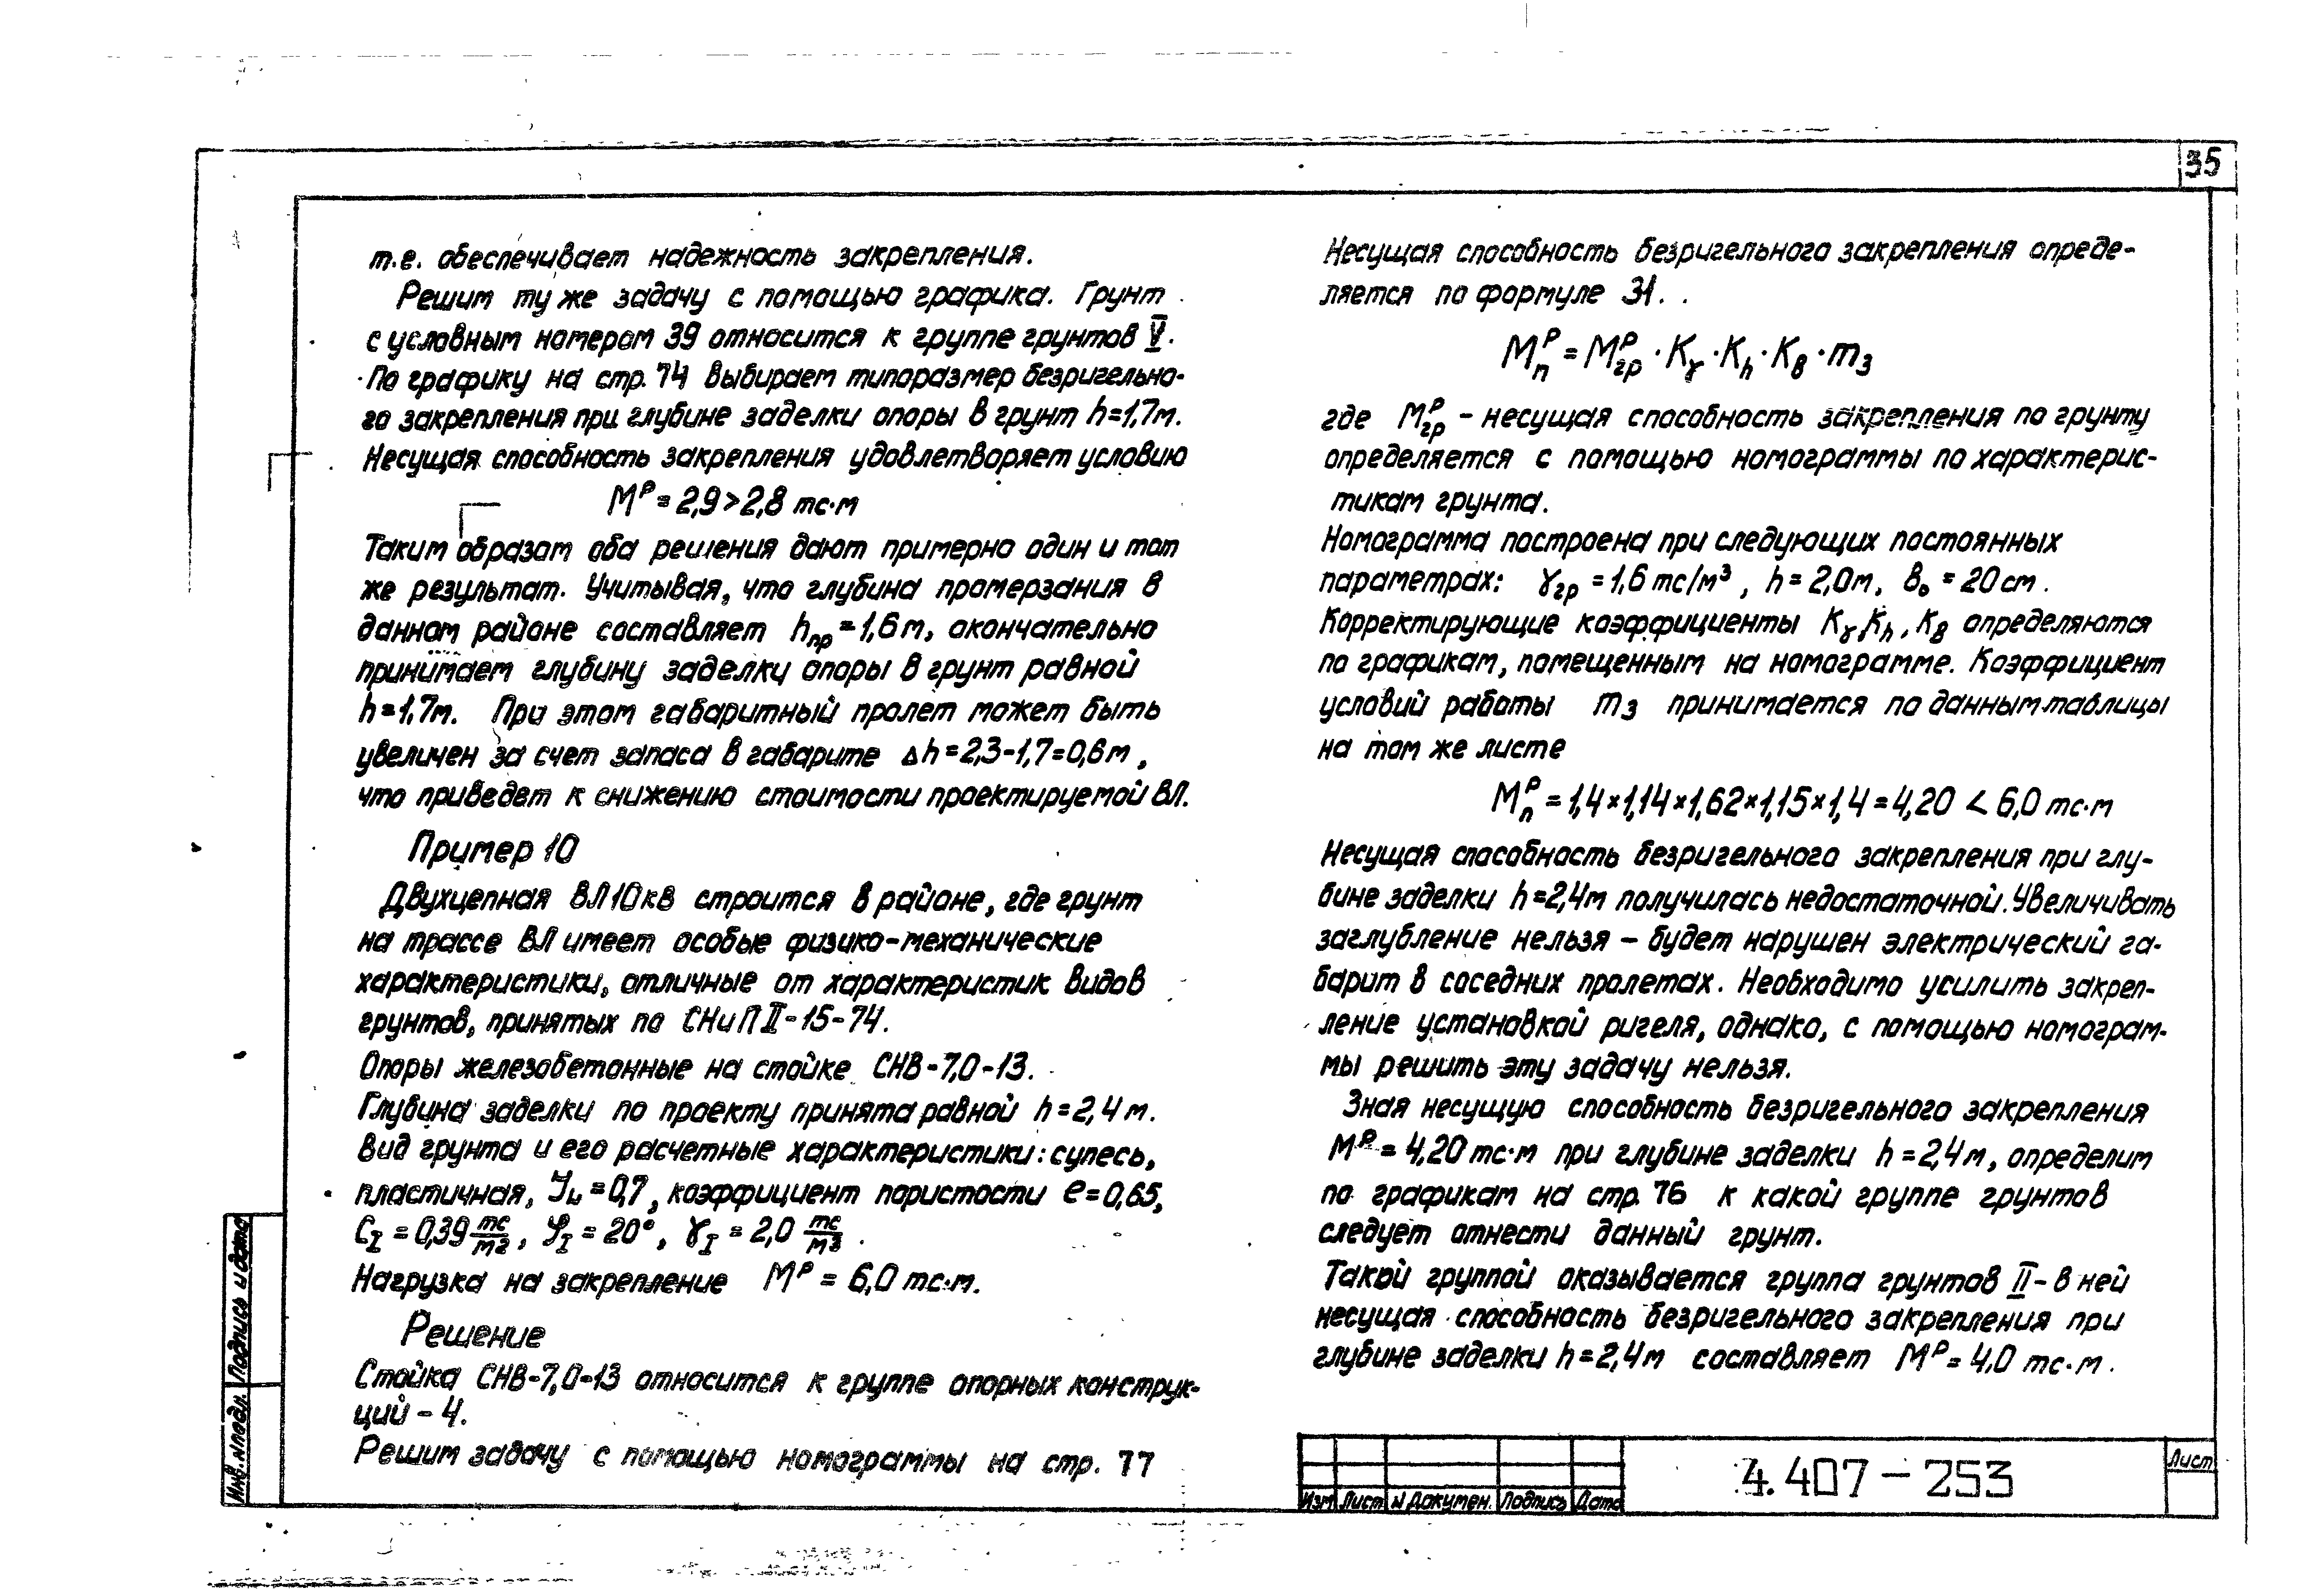 35
т.е. обеспечивает надежность закрепления.
Решим ту же задачу с помощью графика. Грунт
с условным номером 39 относится к группе грунтов V.
По графику на стр. 74 выбираем типоразмер безригельно-
го закрепления при глубине заделки опоры в грунт h=1,7м.
Несущая способность закрепления удовлетворяет условию
Mᵖ = 2,9 > 2,8 тс·м
Таким образом оба решения дают примерно один и тот
же результат. Учитывая, что глубина промерзания в
данном районе составляет hпр = 1,6 м, окончательно
принимает глубину заделки опоры в грунт равной
h=1,7м. При этом габаритный пролет может быть
увеличен за счет запаса в габарите Δh = 2,3-1,7=0,6м,
что приведет к снижению стоимости проектируемой ВЛ.
Пример 10
Двухцепная ВЛ 10 кВ строится в районе, где грунт
на трассе ВЛ имеет особые физико-механические
характеристики, отличные от характеристик видов
грунтов, принятых по СНиП II-15-74.
Опоры железобетонные на стойке СНВ-7,0-13.
Глубина заделки по проекту принята равной h = 2,4 м.
Вид грунта и его расчетные характеристики: супесь,
пластичная, Jн = 0,7, коэффициент пористости e = 0,65,
CI = 0,39 тс/м2, φI = 20°, γI = 2,0 тс/м3.
Нагрузка на закрепление Mᵖ = 6,0 тс·м.
Решение
Стойка СНВ-7,0-13 относится к группе опорных конструк-
ций - 4.
Решим задачу с помощью номограммы на стр. 77
Несущая способность безригельного закрепления опреде-
ляется по формуле 31.
Mᵖп = Mᵖгр · Kγ · Kh · Kв · m3
где Mᵖгр - несущая способность закрепления по грунту
определяется с помощью номограммы по характерис-
тикам грунта.
Номограмма построена при следующих постоянных
параметрах: γгр = 1,6 тс/м³, h = 2,0м, в₀ = 20 см.
Корректирующие коэффициенты Kγ, Kh, Kв определяются
по графикам, помещенным на номограмме. Коэффициент
условий работы m3 принимается по данным таблицы
на том же листе
Mᵖп = 1,4×1,14×1,62×1,15×1,4 = 4,20 < 6,0 тс·м
Несущая способность безригельного закрепления при глу-
бине заделки h=2,4м получилась недостаточной. Увеличивать
заглубление нельзя - будет нарушен электрический га-
барит в соседних пролетах. Необходимо усилить закреп-
ление установкой ригеля, однако, с помощью номограм-
мы решить эту задачу нельзя.
Зная несущую способность безригельного закрепления
Mᵖ = 4,20 тс·м при глубине заделки h = 2,4м, определим
по графикам на стр. 76 к какой группе грунтов
следует отнести данный грунт.
Такой группой оказывается группа грунтов II - в ней
несущая способность безригельного закрепления при
глубине заделки h = 2,4м составляет Mᵖ = 4,0 тс·м.
Инв. № подл. Подпись и дата
Изм Лист № Докумен. Подпись Дата
4.407-253
Лист